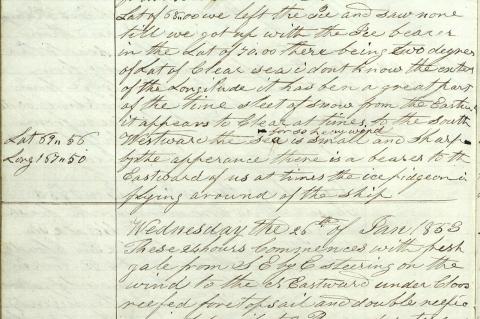 Lat of 68"00 we left the Ice and saw none
till we got up with the Ice bearer
in the Lat of 70.00 there being two degrees
of Lat of Clear sea i dont know the
of the Longitude it has ben a great part
of the time sleet of snow from the Eastward
it appears to Clear at times, to the South
for so heavy wind
Westward the sea is small and sharp
by the apperance there is a bearer to the
Eastward of us at times the ice pidgeon is
flying around of the ship
Lat 69" 56
Long 157" 50
Wednesday the 26th of Jan 1853
These 24 hours Commences with fresh
gale from S E by E steering on the
wind to the Eastward under Cloos
reefed foretopsail and double reefed